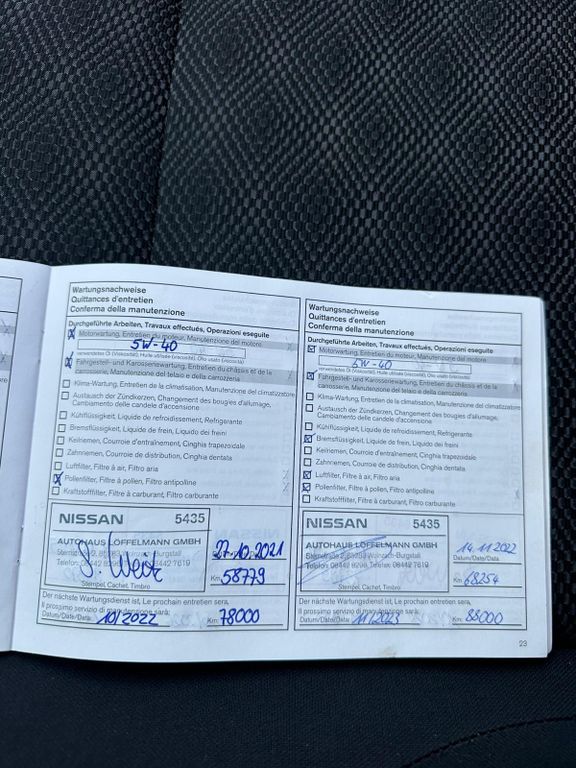 Wartungsnachweise
Quittances d'entretien
Conferma della manutenzione
Durchgeführte Arbeiten, Travaux effectués, Operazioni eseguite
Motorwartung, Entretien du moteur, Manutenzione del motore
5W-40
verwendetes Öl (Viskosität), Huile utilisée (viscosité), Olio usato (viscosità)
Fahrgestell- und Karosseriewartung, Entretien du châssis et de la
carosserie, Manutenzione del telaio e della carrozzeria
Klima-Wartung, Entretien de la climatisation, Manutenzione del climatizzatore
Austausch der Zündkerzen, Changement des bougies d'allumage,
Cambiamento delle candele d'accensione
Kühlflüssigkeit, Liquide de refroidissement, Refrigerante
Bremsflüssigkeit, Liquide de frein, Liquido dei freini
Keilriemen, Courroie d'entraînement, Cinghia trapezoidale
Zahnriemen, Courroie de distribution, Cinghia dentata
Luftfilter, Filtre à air, Filtro aria
Pollenfilter, Filtre à pollen, Filtro antipolline
Kraftstofffilter, Filtre à carburant, Filtro carburante
NISSAN 5435
AUTOHAUS LÖFFELMANN GMBH
Wolnzach-Burgstall
Telefon 08442 8296
27.10.2021
Km: 58779
Stempel, Cachet, Timbro
Der nächste Wartungsdienst ist, Le prochain entretien sera,
Il prossimo servizio di manutenzione sarà:
Datum/Date/Data: 10/2022 Km: 78000
Wartungsnachweise
Quittances d'entretien
Conferma della manutenzione
Durchgeführte Arbeiten, Travaux effectués, Operazioni eseguite
Motorwartung, Entretien du moteur, Manutenzione del motore
5W-40
verwendetes Öl (Viskosität), Huile utilisée (viscosité), Olio usato (viscosità)
Fahrgestell- und Karosseriewartung, Entretien du châssis et de la
carosserie, Manutenzione del telaio e della carrozzeria
Klima-Wartung, Entretien de la climatisation, Manutenzione del climatizzatore
Austausch der Zündkerzen, Changement des bougies d'allumage,
Cambiamento delle candele d'accensione
Kühlflüssigkeit, Liquide de refroidissement, Refrigerante
Bremsflüssigkeit, Liquide de frein, Liquido dei freini
Keilriemen, Courroie d'entraînement, Cinghia trapezoidale
Zahnriemen, Courroie de distribution, Cinghia dentata
Luftfilter, Filtre à air, Filtro aria
Pollenfilter, Filtre à pollen, Filtro antipolline
Kraftstofffilter, Filtre à carburant, Filtro carburante
NISSAN 5435
AUTOHAUS LÖFFELMANN GMBH
Wolnzach-Burgstall
Telefon 08442 8296
14.11.2022
Km: 68254
Stempel, Cachet, Timbro
Der nächste Wartungsdienst ist, Le prochain entretien sera,
Il prossimo servizio di manutenzione sarà:
Datum/Date/Data: 11/2023 Km: 88000
23